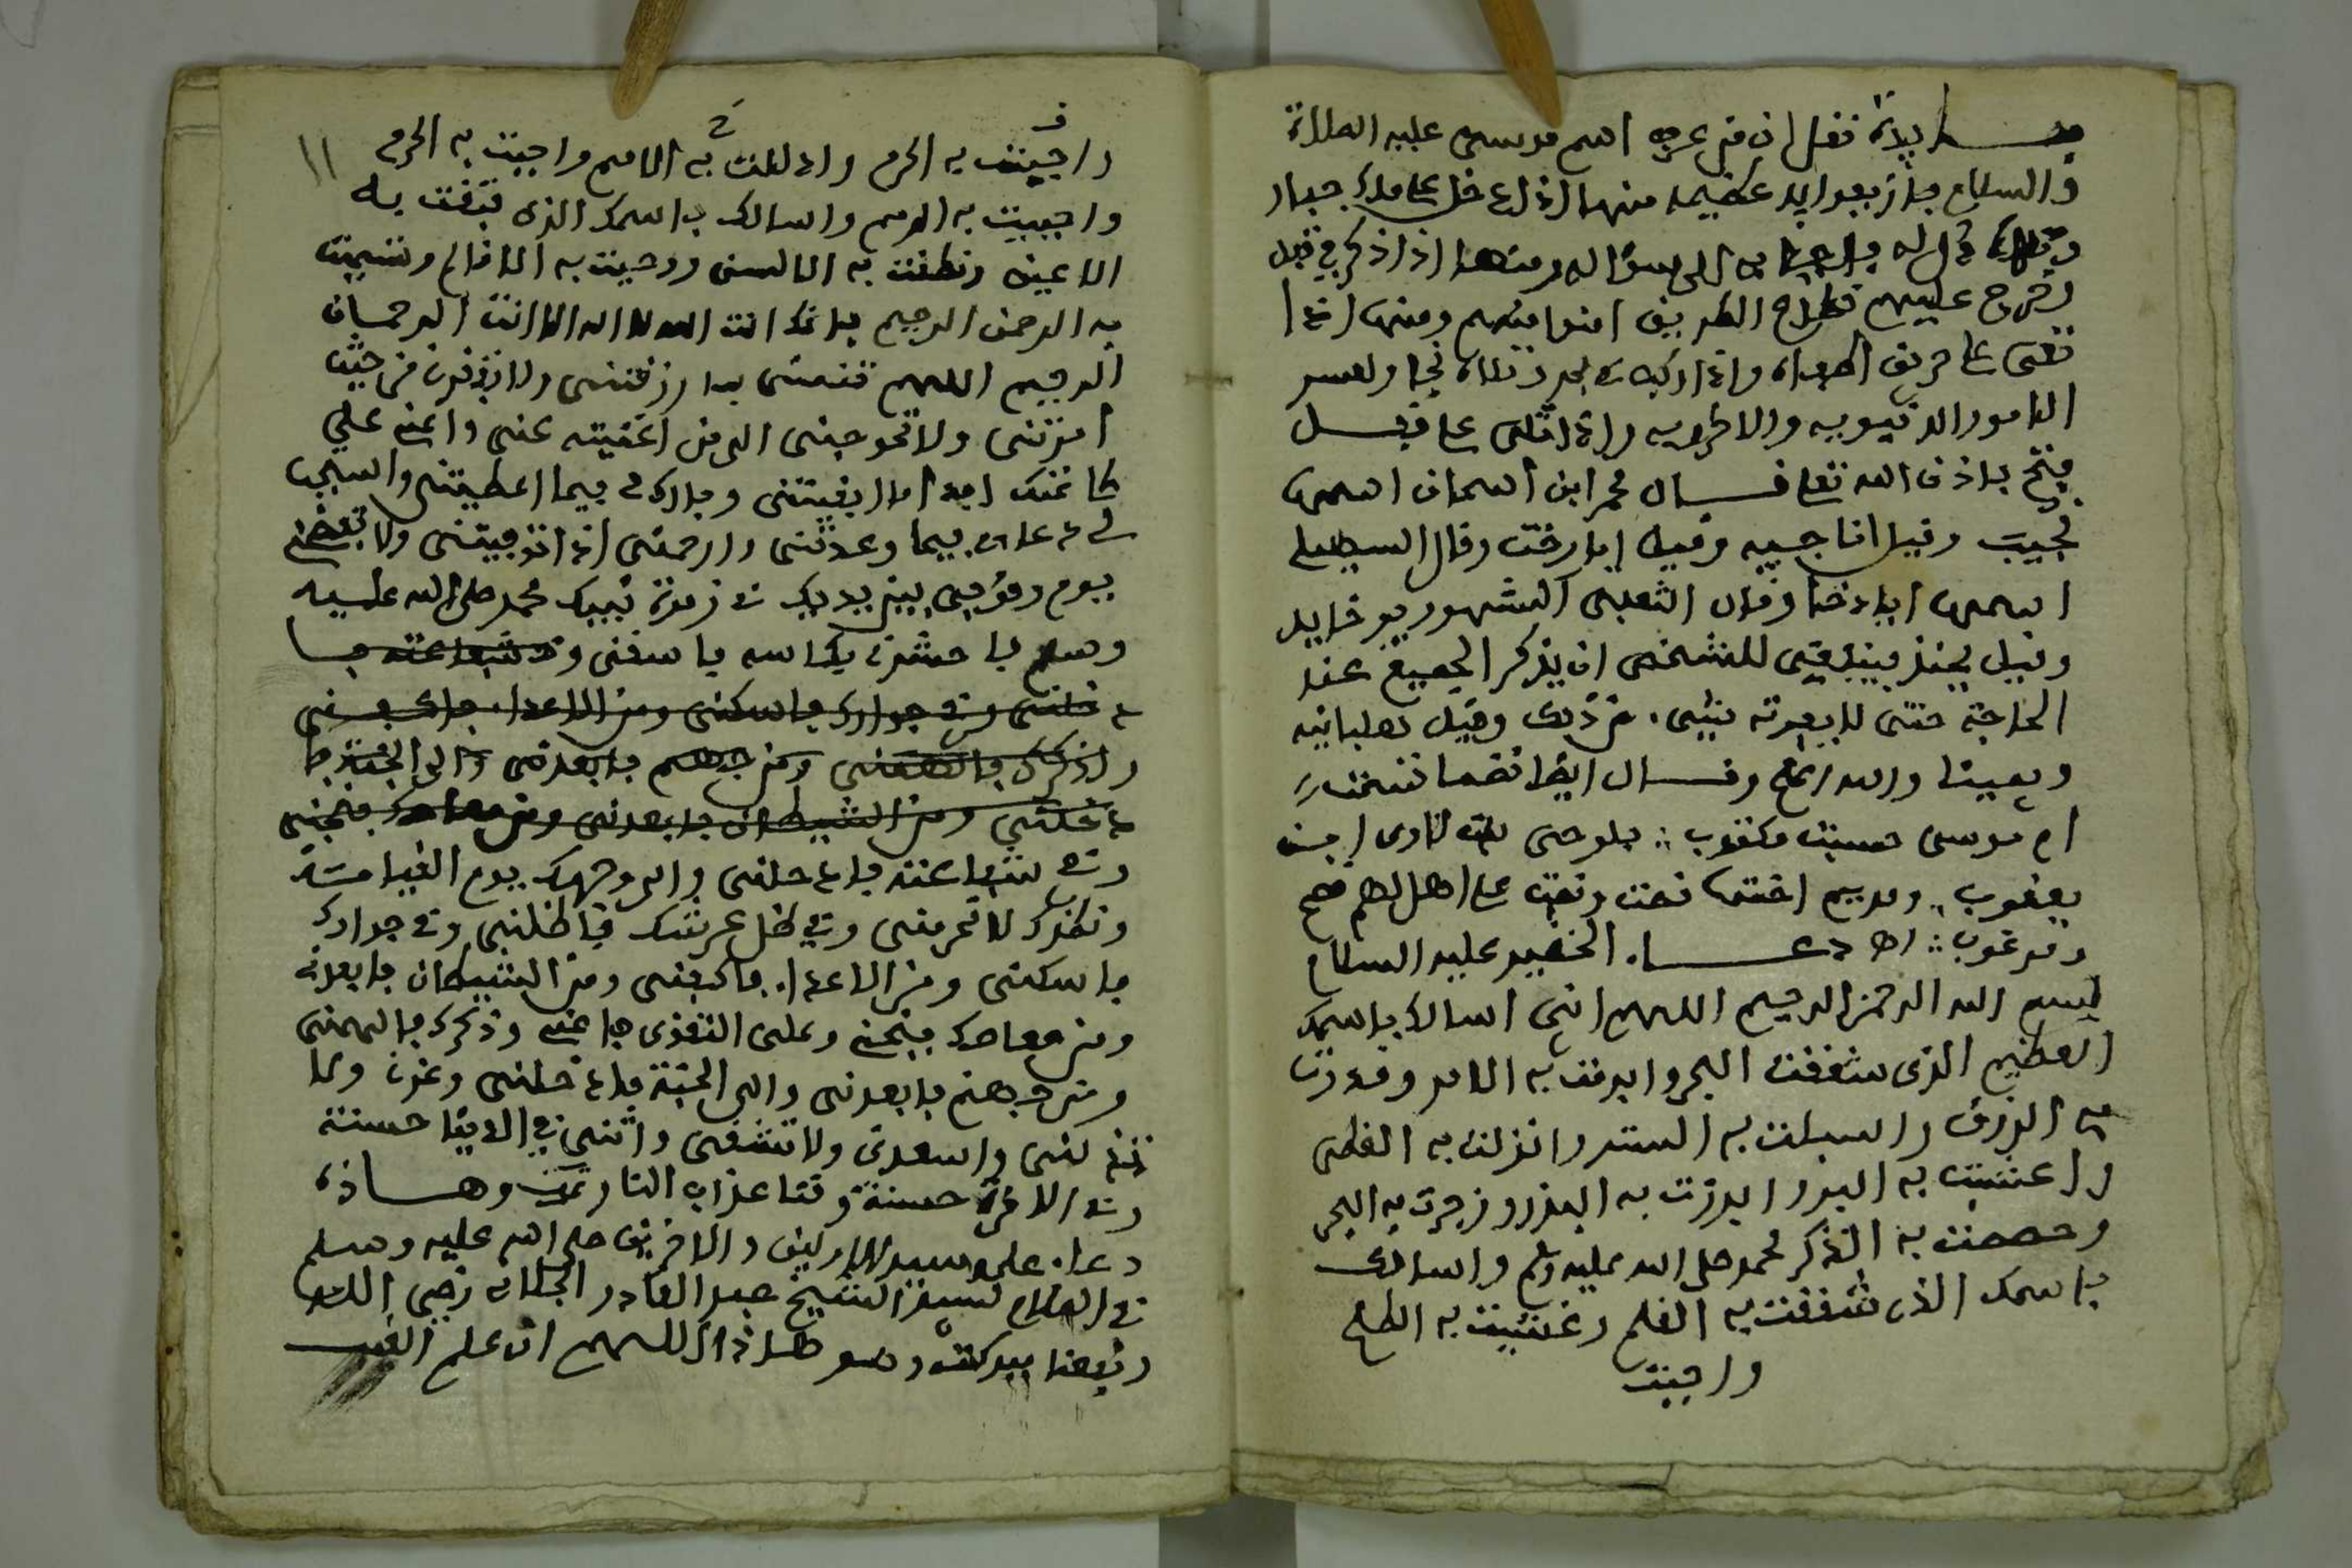 فايدة نقل ان من عرف اسم ام موسى عليه الصلاة
والسلام جاز بفوايد عظيمه منها اذا دخل على ملك جبار
لخرج عليهم قطاع الطريق امنوا منهم ومنها اذا
الامور الدنيويه والاخرويه واذا تلى على قفل
فتح باذن الله تعلى قال محمد ابن اسحاق اسمها
نجيب وقيل اناجيه وقيل ايارخت وقال السهيلي
اسمها ايارخا وقال الثعلبي المشهور يوخايد
وقيل يحنذ فينبغي للشخص ان يذكر الجميع عند
الحاجة حتى لا يفوته شيء من ذلك وقيل لهيانيه
وبعينا والله اعلم وقال ايضا
ام موسى مكتوب لاوى ابن
يعقوب ومريم اختها على اهل
ومرغوب اهـ دعاء الخضير عليه السلام
بسم الله الرحمن الرحيم اللهم اني اسالك باسمك
العظيم الذي شققت البحر وابرمت به الامر وقدرت
به الرزق واسبلت به الستر وانزلت به القطر
واعشبت به البر وابرزت به البذر وزجرت به البحر
وحصنت به الذكر لمحمد صلى الله عليه وسلم واسالك
باسمك الذي شققت به القلم وغشيت به الظلم
واجبت
١١
واجبت به الحرم واذللت به الامم واجبت به الحرم
واحييت به الرمم واسالك باسمك الذي فتقت به
الاعين ونطقت به الالسن ووحيت به الاقلام وتسميت
به الرحمن الرحيم بانك انت الله لا اله الا انت الرحمان
الرحيم اللهم قنعني بما رزقتني ولا من حيث
امرتني ولا تحوجني الى من اغنيته عني واعني على
طاعتك ابدا ما ابقيتني وبارك لي فيما اعطيتني واستجب
لي دعاى فيما وعدتني وارحمني اذا توفيتني ولا تفضحني
يوم وقوفي بين يديك في زمرة نبيك محمد صلى الله عليه
وسلم فاحشرني بكاسه فاسقني وفي شفاعته فا
دخلني وفي جوارك فاسكني ومن الاعداء فاكفني
وذكرك فالهمني ومن جهنم فابعدني والى الجنة فا
دخلني ومن الشيطان فابعدني ومن معاصيك فجنبني
وفي شفاعته فادخلني والى وجهك يوم القيامة
ونظرك لا تحرمني وفي ظل عرشك فاظلني وفي جوارك
فاسكني ومن الاعداء فاكفني ومن الشيطان فابعدني
ومن معاصيك فجنبني وعلى التقوى فاعني وذكرك فالهمني
ومن جهنم فابعدني والى الجنة فادخلني وعزني ولا
تذلني واسعدني ولا تشقني واتني في الدنيا حسنة
وفي الاخرة حسنة وقنا عذاب النار تمت وهاذه
دعاء على سيد الاولين والاخرين صلى الله عليه وسلم
في الصلاة لسيدنا الشيخ عبد القادر الجيلاني رضي الله
ونفعنا ببركته وهو هاذا اللهم ان علم الغيب